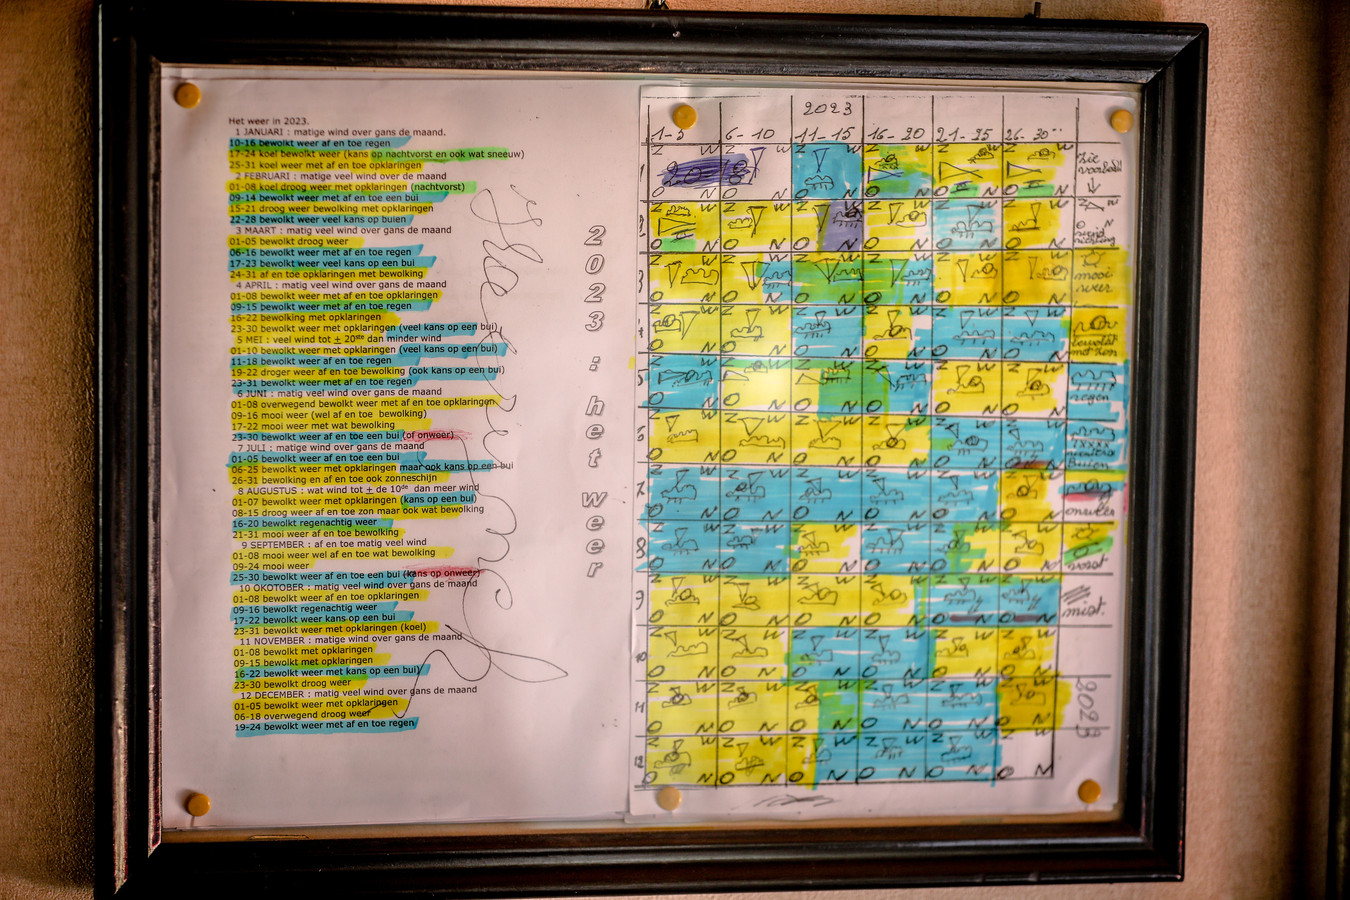 Het weer in 2023.
1 JANUARI : matige wind over gans de maand.
10-16 bewolkt weer af en toe regen
17-24 koel bewolkt weer (kans op nachtvorst en ook wat sneeuw)
25-31 koel weer met af en toe opklaringen
2 FEBRUARI : matige veel wind over de maand
01-08 koel droog weer met opklaringen (nachtvorst)
09-14 bewolkt weer met af en toe een bui
15-21 droog weer bewolking met opklaringen
22-28 bewolkt weer veel kans op buien
3 MAART : matig veel wind over gans de maand
01-05 bewolkt droog weer
06-16 bewolkt weer met af en toe regen
17-23 bewolkt weer veel kans op een bui
24-31 af en toe opklaringen met bewolking
4 APRIL : matig veel wind over gans de maand
01-08 bewolkt weer met af en toe opklaringen
09-15 bewolkt weer met af en toe regen
16-22 bewolking met opklaringen
23-30 bewolkt weer met opklaringen (veel kans op een bui)
5 MEI : veel wind tot ± 20ste dan minder wind
01-10 bewolkt weer met opklaringen (veel kans op een bui)
11-18 bewolkt weer af en toe regen
19-22 droger weer af en toe bewolking (ook kans op een bui)
23-31 bewolkt weer met af en toe regen
6 JUNI : matige wind over gans de maand
01-08 overwegend bewolkt weer met af en toe opklaringen
09-16 mooi weer (wel af en toe bewolking)
17-22 mooi weer met wat bewolking
23-30 bewolkt weer af en toe een bui (of onweer)
7 JULI : matige wind over gans de maand
01-05 bewolkt weer af en toe een bui
06-25 bewolkt weer met opklaringen maar ook kans op een bui
26-31 bewolking en af en toe ook zonneschijn
8 AUGUSTUS : wat wind tot ± de 10de dan meer wind
01-07 bewolkt weer met opklaringen (kans op een bui)
08-15 droog weer af en toe zon maar ook wat bewolking
16-20 bewolkt regenachtig weer
21-31 mooi weer af en toe bewolking
9 SEPTEMBER : af en toe matig veel wind
01-08 mooi weer wel af en toe wat bewolking
09-24 mooi weer
25-30 bewolkt weer af en toe een bui (kans op onweer)
10 OKOTOBER : matig veel wind over gans de maand
01-08 bewolkt weer af en toe opklaringen
09-16 bewolkt regenachtig weer
17-22 bewolkt weer kans op een bui
23-31 bewolkt weer met opklaringen (koel)
11 NOVEMBER : matige wind over gans de maand
01-08 bewolkt met opklaringen
09-15 bewolkt met opklaringen
16-22 bewolkt weer met kans op een bui)
23-30 bewolkt droog weer
12 DECEMBER : matig veel wind over gans de maand
01-05 bewolkt weer met opklaringen
06-18 overwegend droog weer
19-24 bewolkt weer met af en toe regen
2023 : het weer
2023
1-5 6-10 11-15 16-20 21-25 26-30
Z W Z W Z W Z W Z W Z W
O N O N O N O N O N O N
zie voorbeeld
wind richting
mooi weer
bewolkt met zon
regen
buien
onweer
vorst
mist.
2023